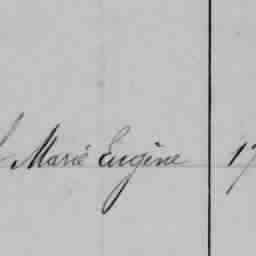 Marie Eugène 17